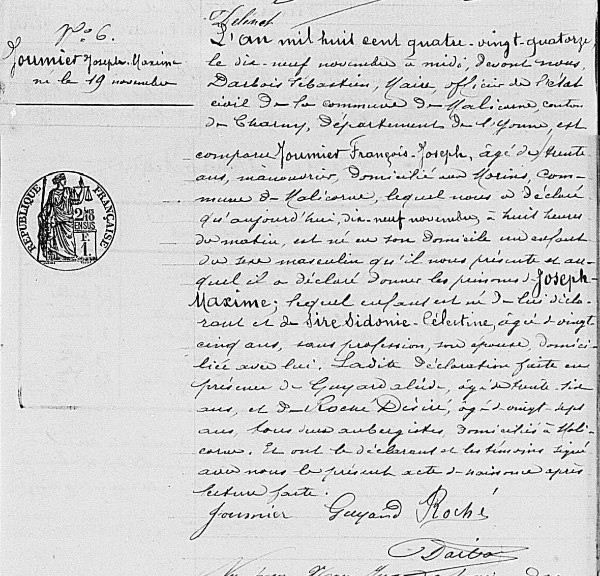 Zelinot
N° 6.
Journier Joseph-Maxime
né le 19 novembre
L'an mil huit cent quatre-vingt-quatorze,
le dix-neuf novembre à midi, devant nous,
Darbois Sébastien, Maire, officier de l'état
civil de la commune de Malicorne, canton
de Charny, département de l'Yonne, est
comparu Journier François-Joseph, âgé de trente
ans, manouvrier, domicilié aux Morins, com-
mune de Malicorne, lequel nous a déclaré
qu'aujourd'hui, dix-neuf novembre, à huit heures
du matin, est né en son domicile un enfant
du sexe masculin qu'il nous présente et au-
quel il a déclaré donner les prénoms de Joseph-
Maxime; lequel enfant est né de lui décla-
rant et de Sire Sidonie-Célestine, âgée de vingt-
cinq ans, sans profession, son épouse, domici-
liée avec lui. Ladite déclaration faite en
présence de Guyard , âgé de trente-six
ans, et de Roché Désiré, âgé de vingt-sept
ans, tous deux aubergistes, domiciliés à Mali-
corne. Et ont le déclarant et les témoins signé
avec nous le présent acte de naissance après
lecture faite.
Journier Guyard Roché
Darbois
RÉPUBLIQUE FRANÇAISE